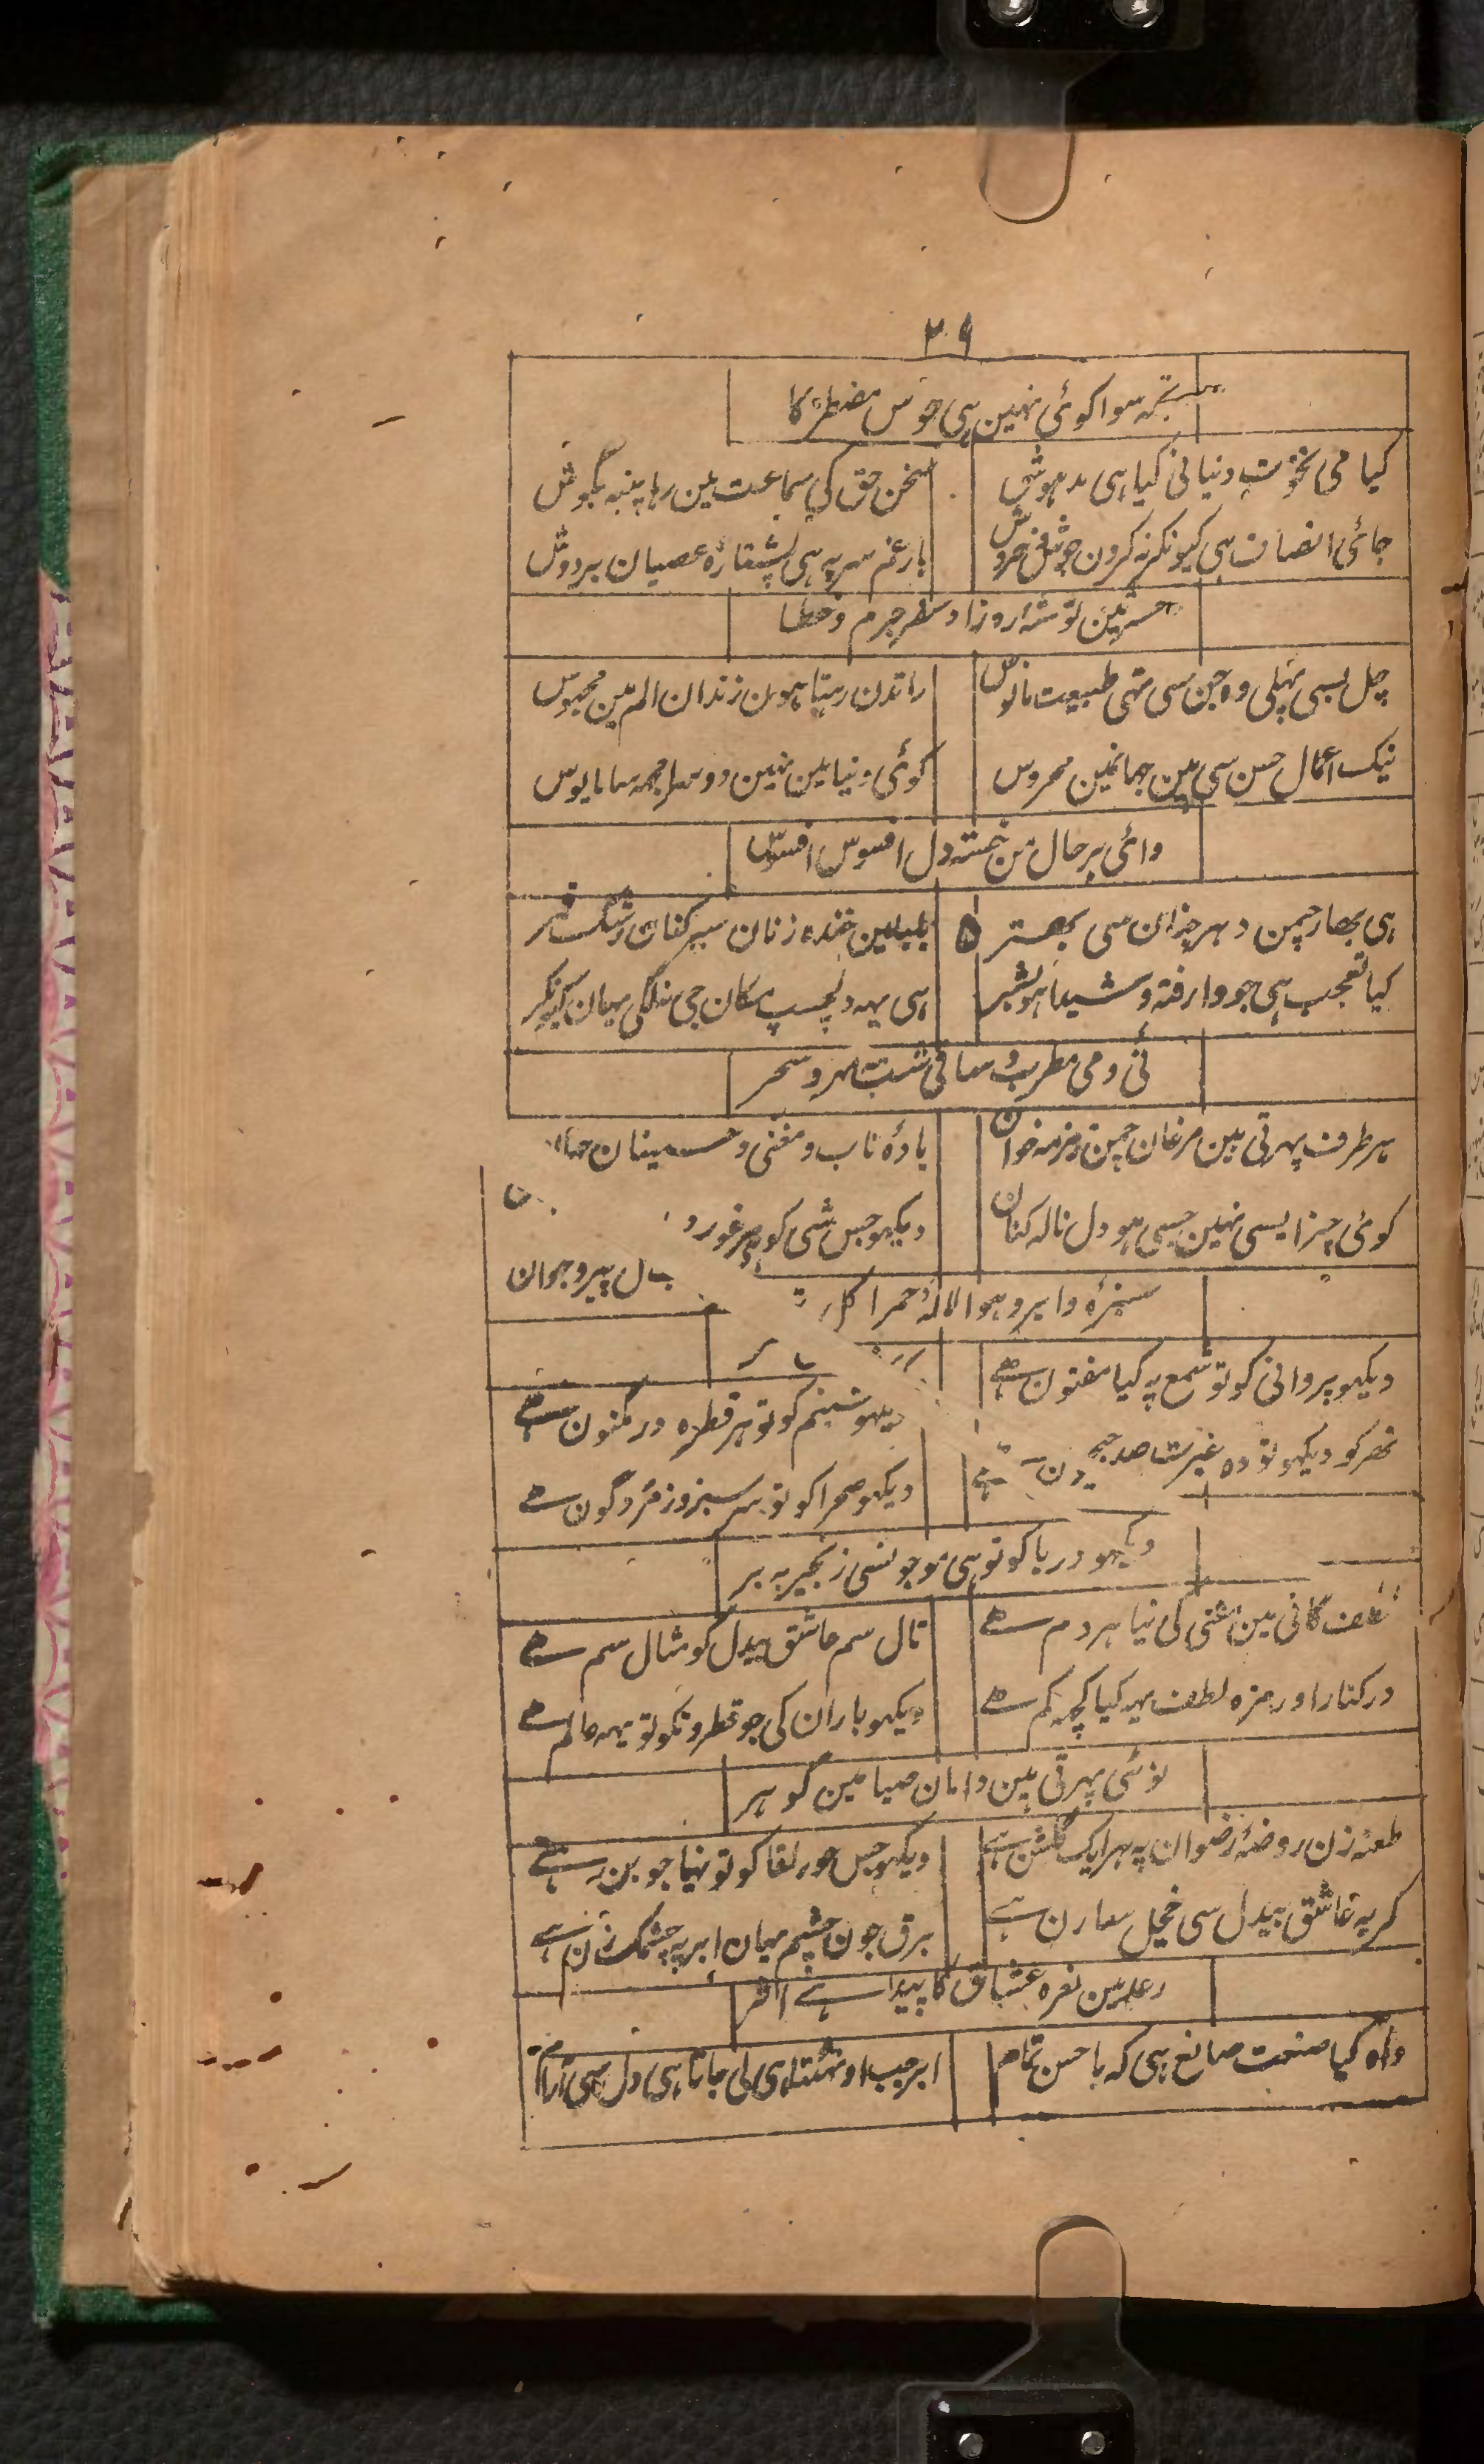 ۲۹
تجہ سوا کوئی نہین ہی مضطر کا
کیا می نخوت دنیا نی کیا ہی مدہوش
سخن حق کی سماعت مین رہا پنبہ بگوش
جائی انصاف ہی کیونکر نہ کرون جوش خروش
بار غم سر پہ ہی پشتارۂ عصیان بردوش
حشر مین توشۂ روز جرم و خطا
چل بسی پہلی وہ جن سی تہی طبیعت مانوس
راتدن رہتا ہون زندان الم مین محبوس
نیک اعمال حسن سی ہین جہانمین محروس
کوئی دنیا مین نہین دوسرا مجہہ سا مایوس
وائی بر حال من خستہ دل افسوس افسوس
ہی بہار چمن دہر خزان سی بہتر ۵
بلبلین خندہ زنان سیر کنان رشک قمر
کیا تعجب ہی جو وارفتہ و شیدا ہو بشر
ہی یہہ دلچسپ مکان جی نلگی یہان کیونکر
نی و می مطرب و ساقی شب مہ و سحر
ہر طرف پہرتی ہین مرغان چمن زمزمہ خوان
بادۂ ناب و مغنی و حسینان جہان
کوئی چیز ایسی نہین جسی ہو دل نالہ کنان
دیکہو جس شی کو غور
ل پیر و جوان
سبزہ و ابر و ہوا لالۂ حمرا گل
دیکہو پروانی کو تو شمع پہ کیا مفتون ہے
شبنم کو تو ہر قطرہ در مکنون ہے
نہر کو دیکہو تو وہ غیرت صد جیحون ہے
دیکہو صحرا کو تو سر سبز و زمرد گون ہے
دیکہو دریا کو تو ہی موجونسی زنجیر بہ بر
لطف گانی مین مغنی کی نیا ہر دم ہے
تال سم عاشق بیدل کو مثال سم ہے
در کنار اور مزہ لطف یہہ کیا کچہہ کم ہے
دیکہو باران کی جو قطرونکو تو یہہ عالم ہے
لوٹتی پہرتی ہین دامان صبا مین گوہر
طعنہ زن روضۂ رضوان پہ ہر ایک گلشن ہے
دیکہو جس حور لقا کو تو نیا جوبن ہے
گریہ عاشق بیدل سی خجل ساون ہے
برق جون چشم میان ابر پہ چشمک زن ہے
رعد مین نعرہ عشاق کا پیدا ہے اثر
واہ کیا صنعت صانع ہی کہ با حسن تمام
ابر جب اوٹہتا ہی لی جاتا ہی دل سی آرام